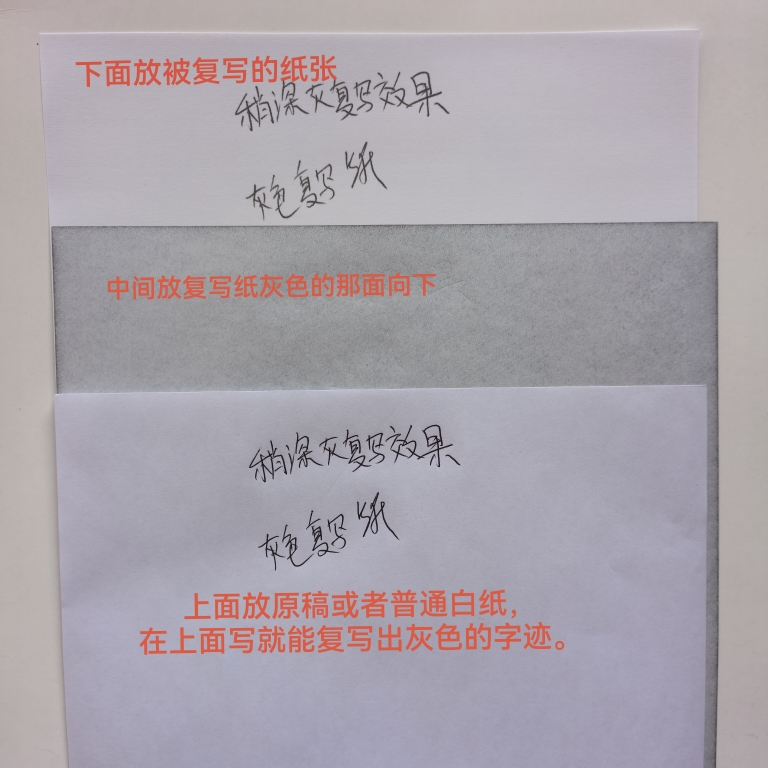 下面放被复写的纸张
稍深灰复写效果
灰色复写纸
中间放复写纸灰色的那面向下
稍深灰复写效果
灰色复写纸
上面放原稿或者普通白纸，
在上面写就能复写出灰色的字迹。